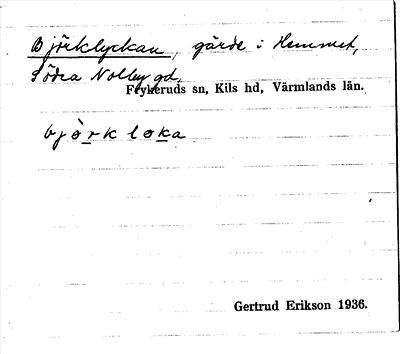 Björklyckan, gärde i Hemmet,
Södra Nolby gd,
Frykeruds sn, Kils hd, Värmlands län.
bjòrkloka
Gertrud Erikson 1936.